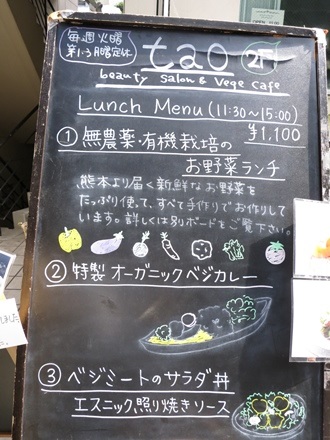 毎週火曜
第1・3月曜定休
tao 2F
beauty salon & Vege cafe
Lunch Menu (11:30～15:00)
¥1,100
① 無農薬・有機栽培の
お野菜ランチ
熊本より届く新鮮なお野菜を
たっぷり使って、すべて手作りでお作りして
います。詳しくは別ボードをご覧下さい。
② 特製 オーガニックベジカレー
③ ベジミートのサラダ丼
エスニック照り焼きソース